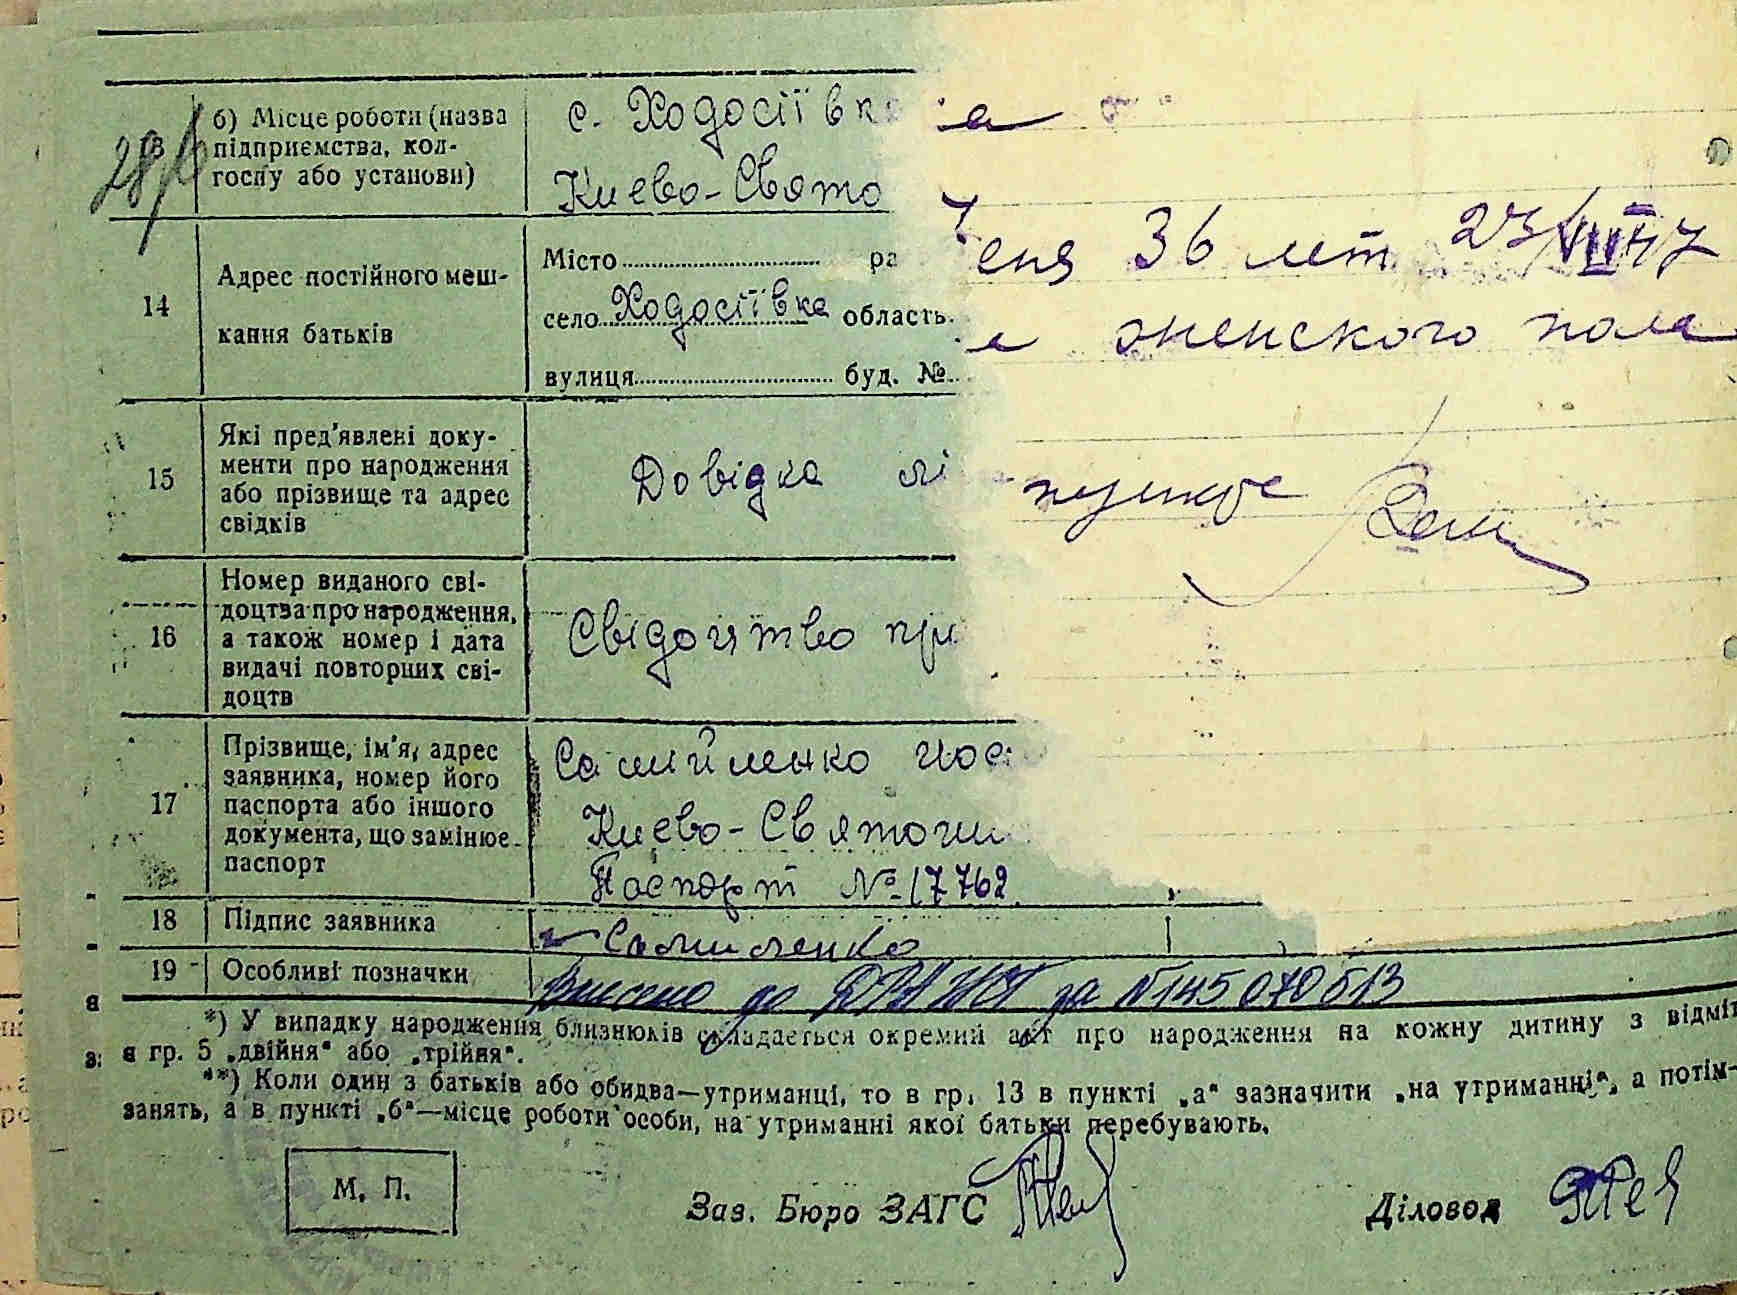 28/
б) Місце роботи (назва підприємства, кол-
госпу або установи)
с. Ходосіївка
Києво-Свято
14
Адрес постійного меш-
кання батьків
Місто ра
село Ходосіївка область
вулиця буд. №
15
Які пред'явлені доку-
менти про народження
або прізвище та адрес
свідків
Довідка лі
16
Номер виданого сві-
доцтва про народження,
а також номер і дата
видачі повторних сві-
доцтв
Свідоцтво
17
Прізвище, ім'я, адрес
заявника, номер його
паспорта або іншого
документа, що замінює
паспорт
Самийленко
Києво-Святошин
Паспорт № 17762
18 Підпис заявника
Самиленко
19 Особливі позначки
Внесено до ДРАЦСГ за №145070513
*) У випадку народження близнюків складається окремий акт про народження на кожну дитину з відміт
в гр. 5 „двійня“ або „трійня“.
**) Коли один з батьків або обидва—утриманці, то в гр. 13 в пункті „а“ зазначити „на утриманні“, а потім—
занять, а в пункті „б“—місце роботи особи, на утриманні якої батьки перебувають.
М. П.
Зав. Бюро ЗАГС
Діловод
36 лет 23/VIII 47
женского пола